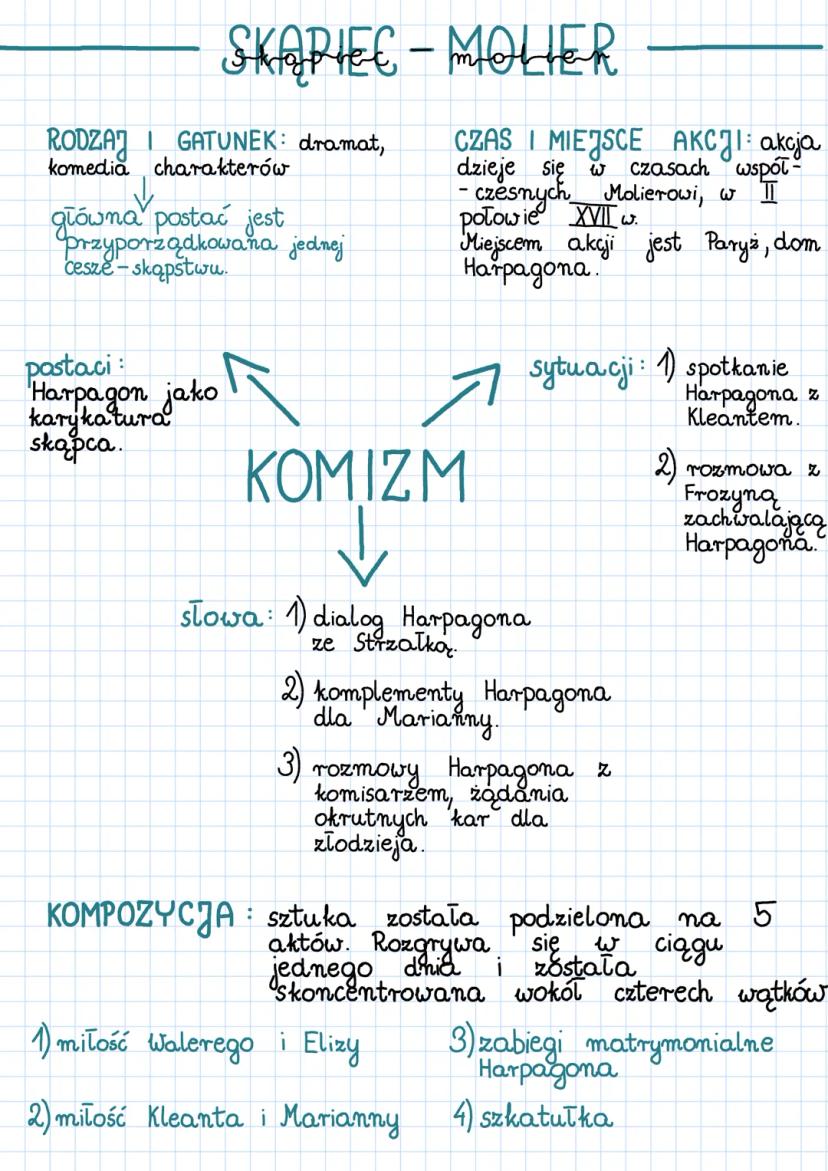 SKĄPIEC – MOLIER
skąpiec molier
RODZAJ I GATUNEK: dramat,
komedia charakterów
główna postać jest
przyporządkowana jednej
cesze – skąpstwu.
CZAS I MIEJSCE AKCJI: akcja
dzieje się w czasach współ-
- czesnych Molierowi, w II
połowie XVII w.
Miejscem akcji jest Paryż, dom
Harpagona.
postaci:
Harpagon jako
karykatura
skąpca.
sytuacji: 1) spotkanie
Harpagona z
Kleantem.
2) rozmowa z
Frozyną
zachwalającą
Harpagona.
KOMIZM
słowa: 1) dialog Harpagona
ze Strzałką.
2) komplementy Harpagona
dla Marianny.
3) rozmowy Harpagona z
komisarzem, żądania
okrutnych kar dla
złodzieja.
KOMPOZYCJA: sztuka została podzielona na 5
aktów. Rozgrywa się w ciągu
jednego dnia i została
skoncentrowana wokół czterech wątków
1) miłość Walerego i Elizy
2) miłość Kleanta i Marianny
3) zabiegi matrymonialne
Harpagona
4) szkatułka